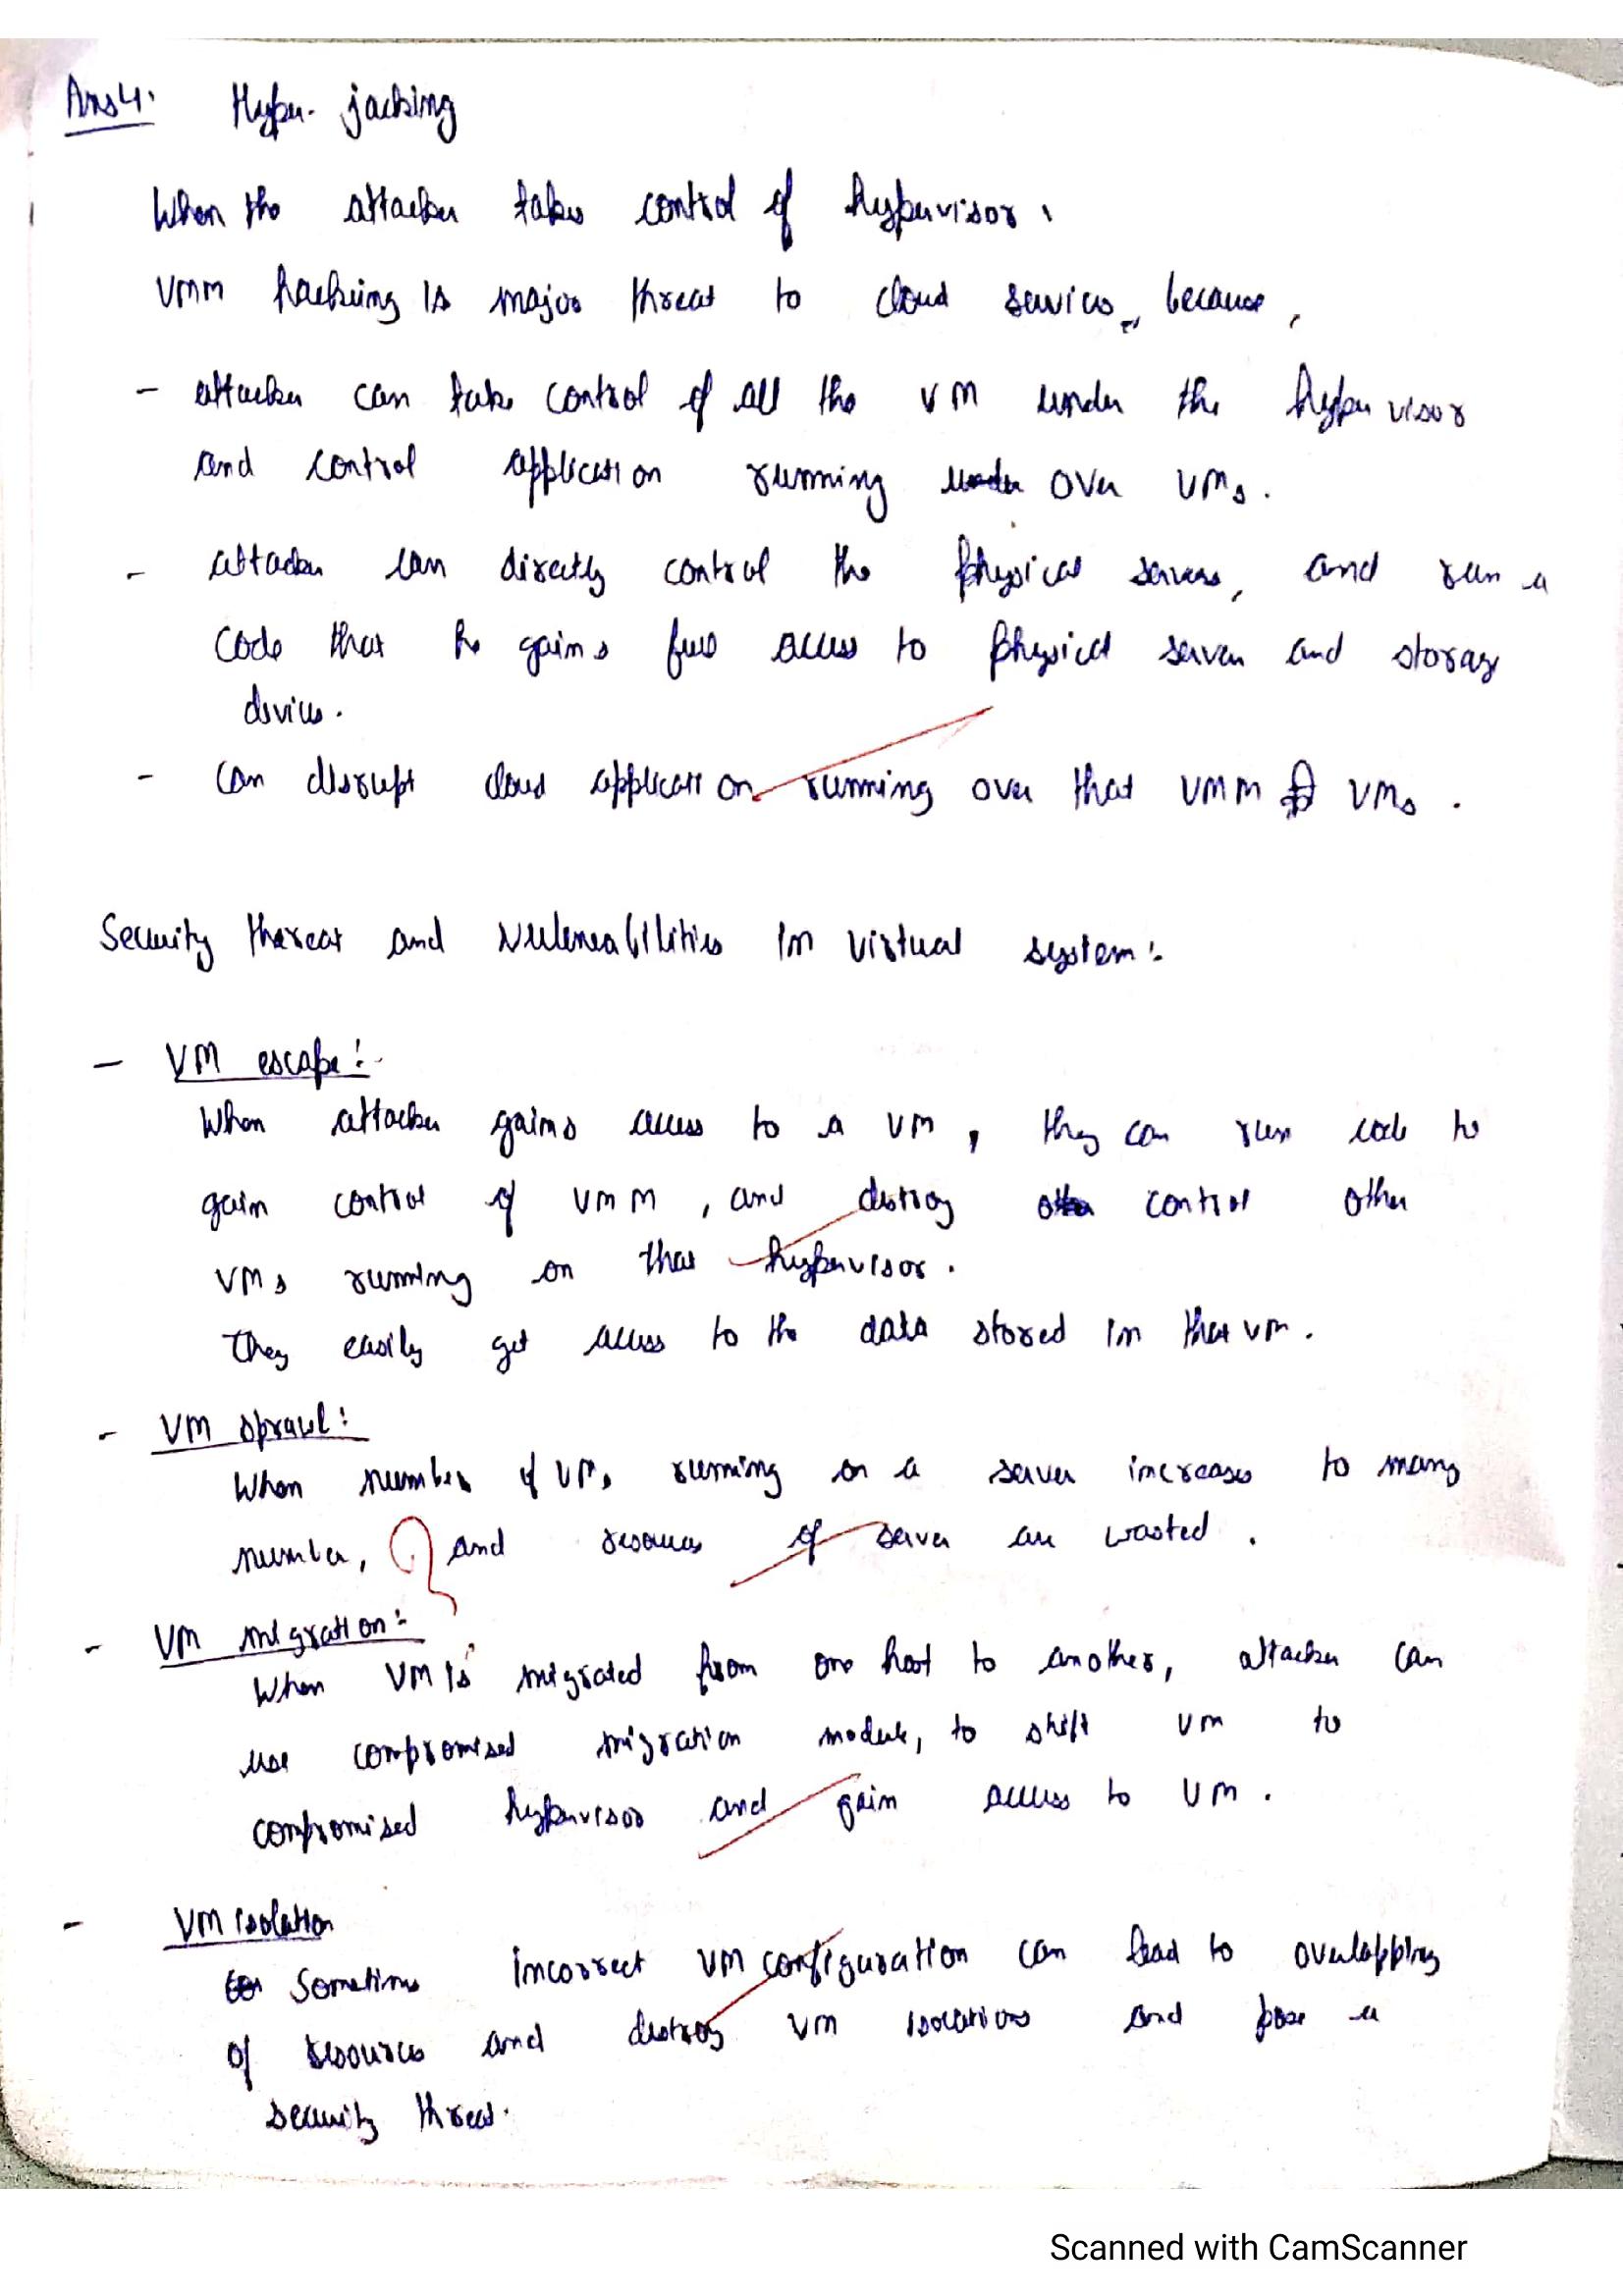 Ans 4. Hyper-jacking
When the attacker takes control of hypervisor.
VMM hacking is major threat to cloud services, because,
- attacker can take control of all the VM under the hypervisor
and control application running over VMs.
- attacker can directly control the physical servers, and run a
code that he gains full access to physical server and storage
devices.
- can disrupt cloud application running over that VMM VMs.
Security thereat and vulnerabilities in virtual system:
- VM escape:-
When attacker gains access to a VM, they can run code to
gain control of VMM, and destroy control other
VMs running on that hypervisor.
They easily get access to the data stored in that VM.
- VM sprawl:
When number of VMs running on a server increases to many
number, and resources of server are wasted.
- VM migration:-
When VM is migrated from one host to another, attacker can
use compromised migration module, to shift VM to
compromised hypervisor and gain access to VM.
- VM isolation
Sometimes incorrect VM configuration can lead to overlapping
of resources and destroy VM isolations and pose a
security threat.
Scanned with CamScanner